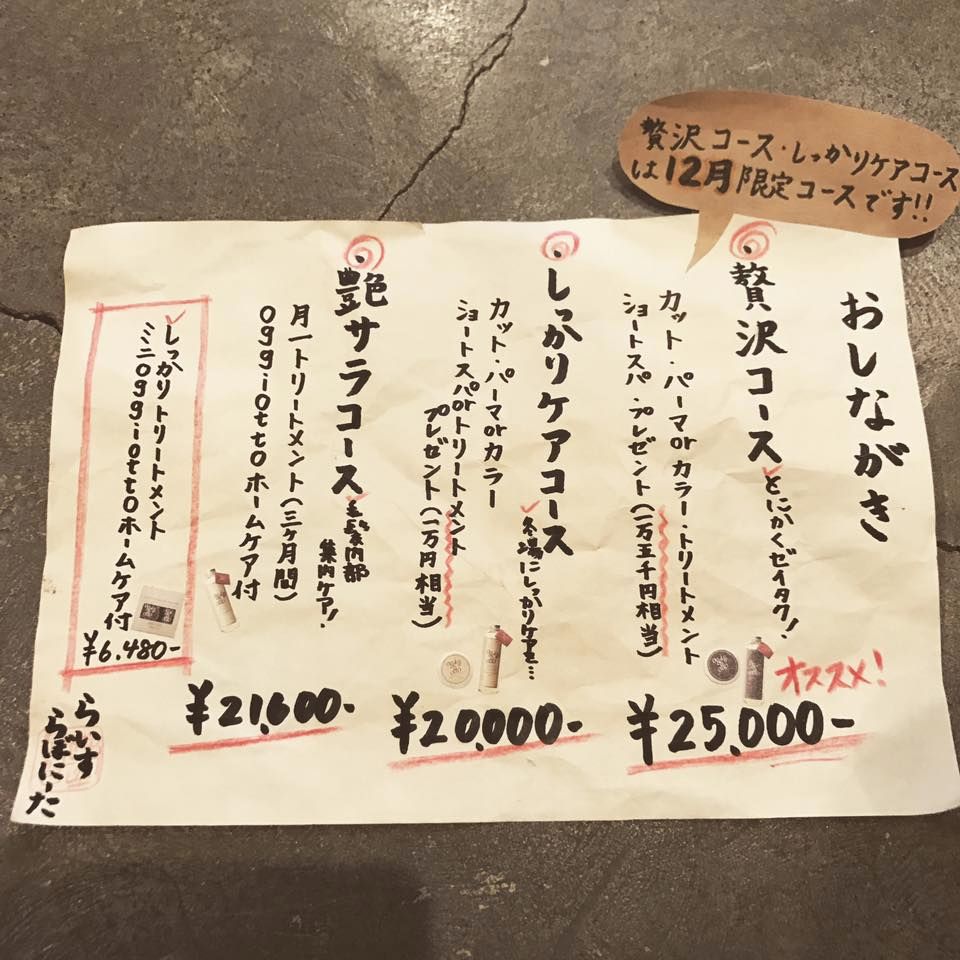 贅沢コース・しっかりケアコース
は12月限定コースです!!
おしながき
・贅沢コース
とにかくゼイタク!
カット・パーマorカラー・トリートメント
ショートスパ・プレゼント(一万五千円相当)
オススメ!
¥25,000-
・しっかりケアコース
冬場にしっかりケアを…
カット・パーマorカラー
ショートスパorトリートメント
プレゼント(一万円相当)
¥20,000-
・艶サラコース
毛髪内部
集中ケア!
月一トリートメント(三ヶ月間)
oggiottoホームケア付
¥21,600-
しっかりトリートメント
ミニoggiottoホームケア付
¥6,480-
らいず
らぼにーた